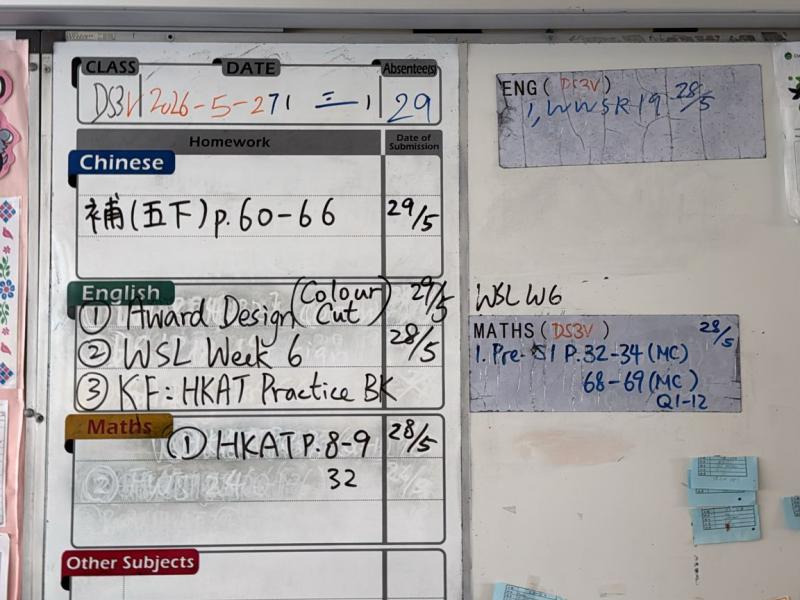 CLASS DATE Absentee(s)
DS3V 2026-5-27 三 29
Homework Date of Submission
Chinese
補(五下)p.60-66 29/5
English
① Award Design (Colour Cut) 29/5
② WSL Week 6 28/5
③ KF: HKAT Practice BK
Maths
① HKAT P. 8-9 28/5
32
Other Subjects
ENG (DS3V) 28/5
1, WWSR 19
WSL W6
MATHS (DS3V) 28/5
1. Pre-S1 P.32-34 (MC)
68-69 (MC)
Q1-12